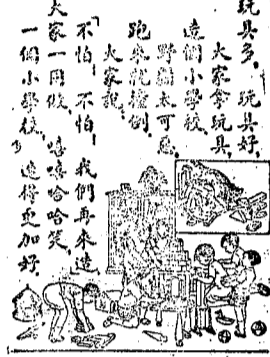 玩具多，玩具好，
大家拿玩具，
造個小學校，
野貓太可惡，
跑來就撞倒，
大家說：
「不怕，不怕，我們再來造
大家一同做，嘻嘻哈哈笑，
一個小學校，」造得更加好。